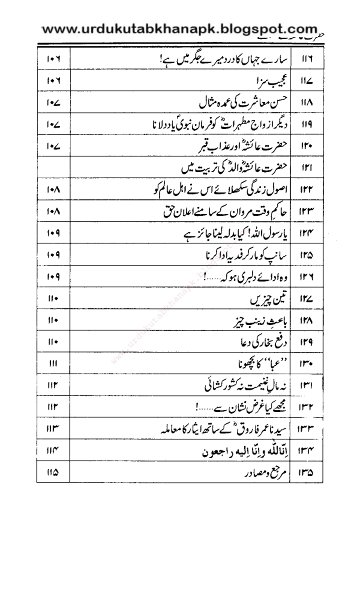 www.urdukutabkhanapk.blogspot.com
۱۱۶ سارے جہاں کا درد میرے جگر میں ہے! ۱۰۶
۱۱۷ عجیب سزا ۱۰۶
۱۱۸ حسن معاشرت کی عمدہ مثال ۱۰۷
۱۱۹ دیگر ازواج مطہراتؓ کو فرمان نبویؐ یاد دلانا ۱۰۷
۱۲۰ حضرت عائشہؓ اور عذاب قبر ۱۰۷
۱۲۱ حضرت عائشہؓ والدؓ کی تربیت میں
۱۲۲ اصول زندگی سکھلائے اس نے اہل عالم کو ۱۰۸
۱۲۳ حاکم وقت مروان کے سامنے اعلان حق ۱۰۸
۱۲۴ یا رسول اللہ! کیا بدلہ لینا جائز ہے ۱۰۹
۱۲۵ سانپ کو مار کر فدیہ ادا کرنا ۱۰۹
۱۲۶ وہ ادائے دلبری ہو کہ......! ۱۰۹
۱۲۷ تین چیزیں ۱۱۰
۱۲۸ باعث زینب چیز ۱۱۰
۱۲۹ دفع بخار کی دعا ۱۱۰
۱۳۰ ”عبا“ کا بچھونا ۱۱۱
۱۳۱ نہ مال غنیمت نہ کشور کشائی ۱۱۲
۱۳۲ مجھے کیا غرض نشان سے......! ۱۱۲
۱۳۳ سیدنا عمر فاروقؓ کے ساتھ ایثار کا معاملہ ۱۱۳
۱۳۴ انّا للّٰہ وانّا الیہ راجعون ۱۱۴
۱۳۵ مرجع و مصادر ۱۱۵